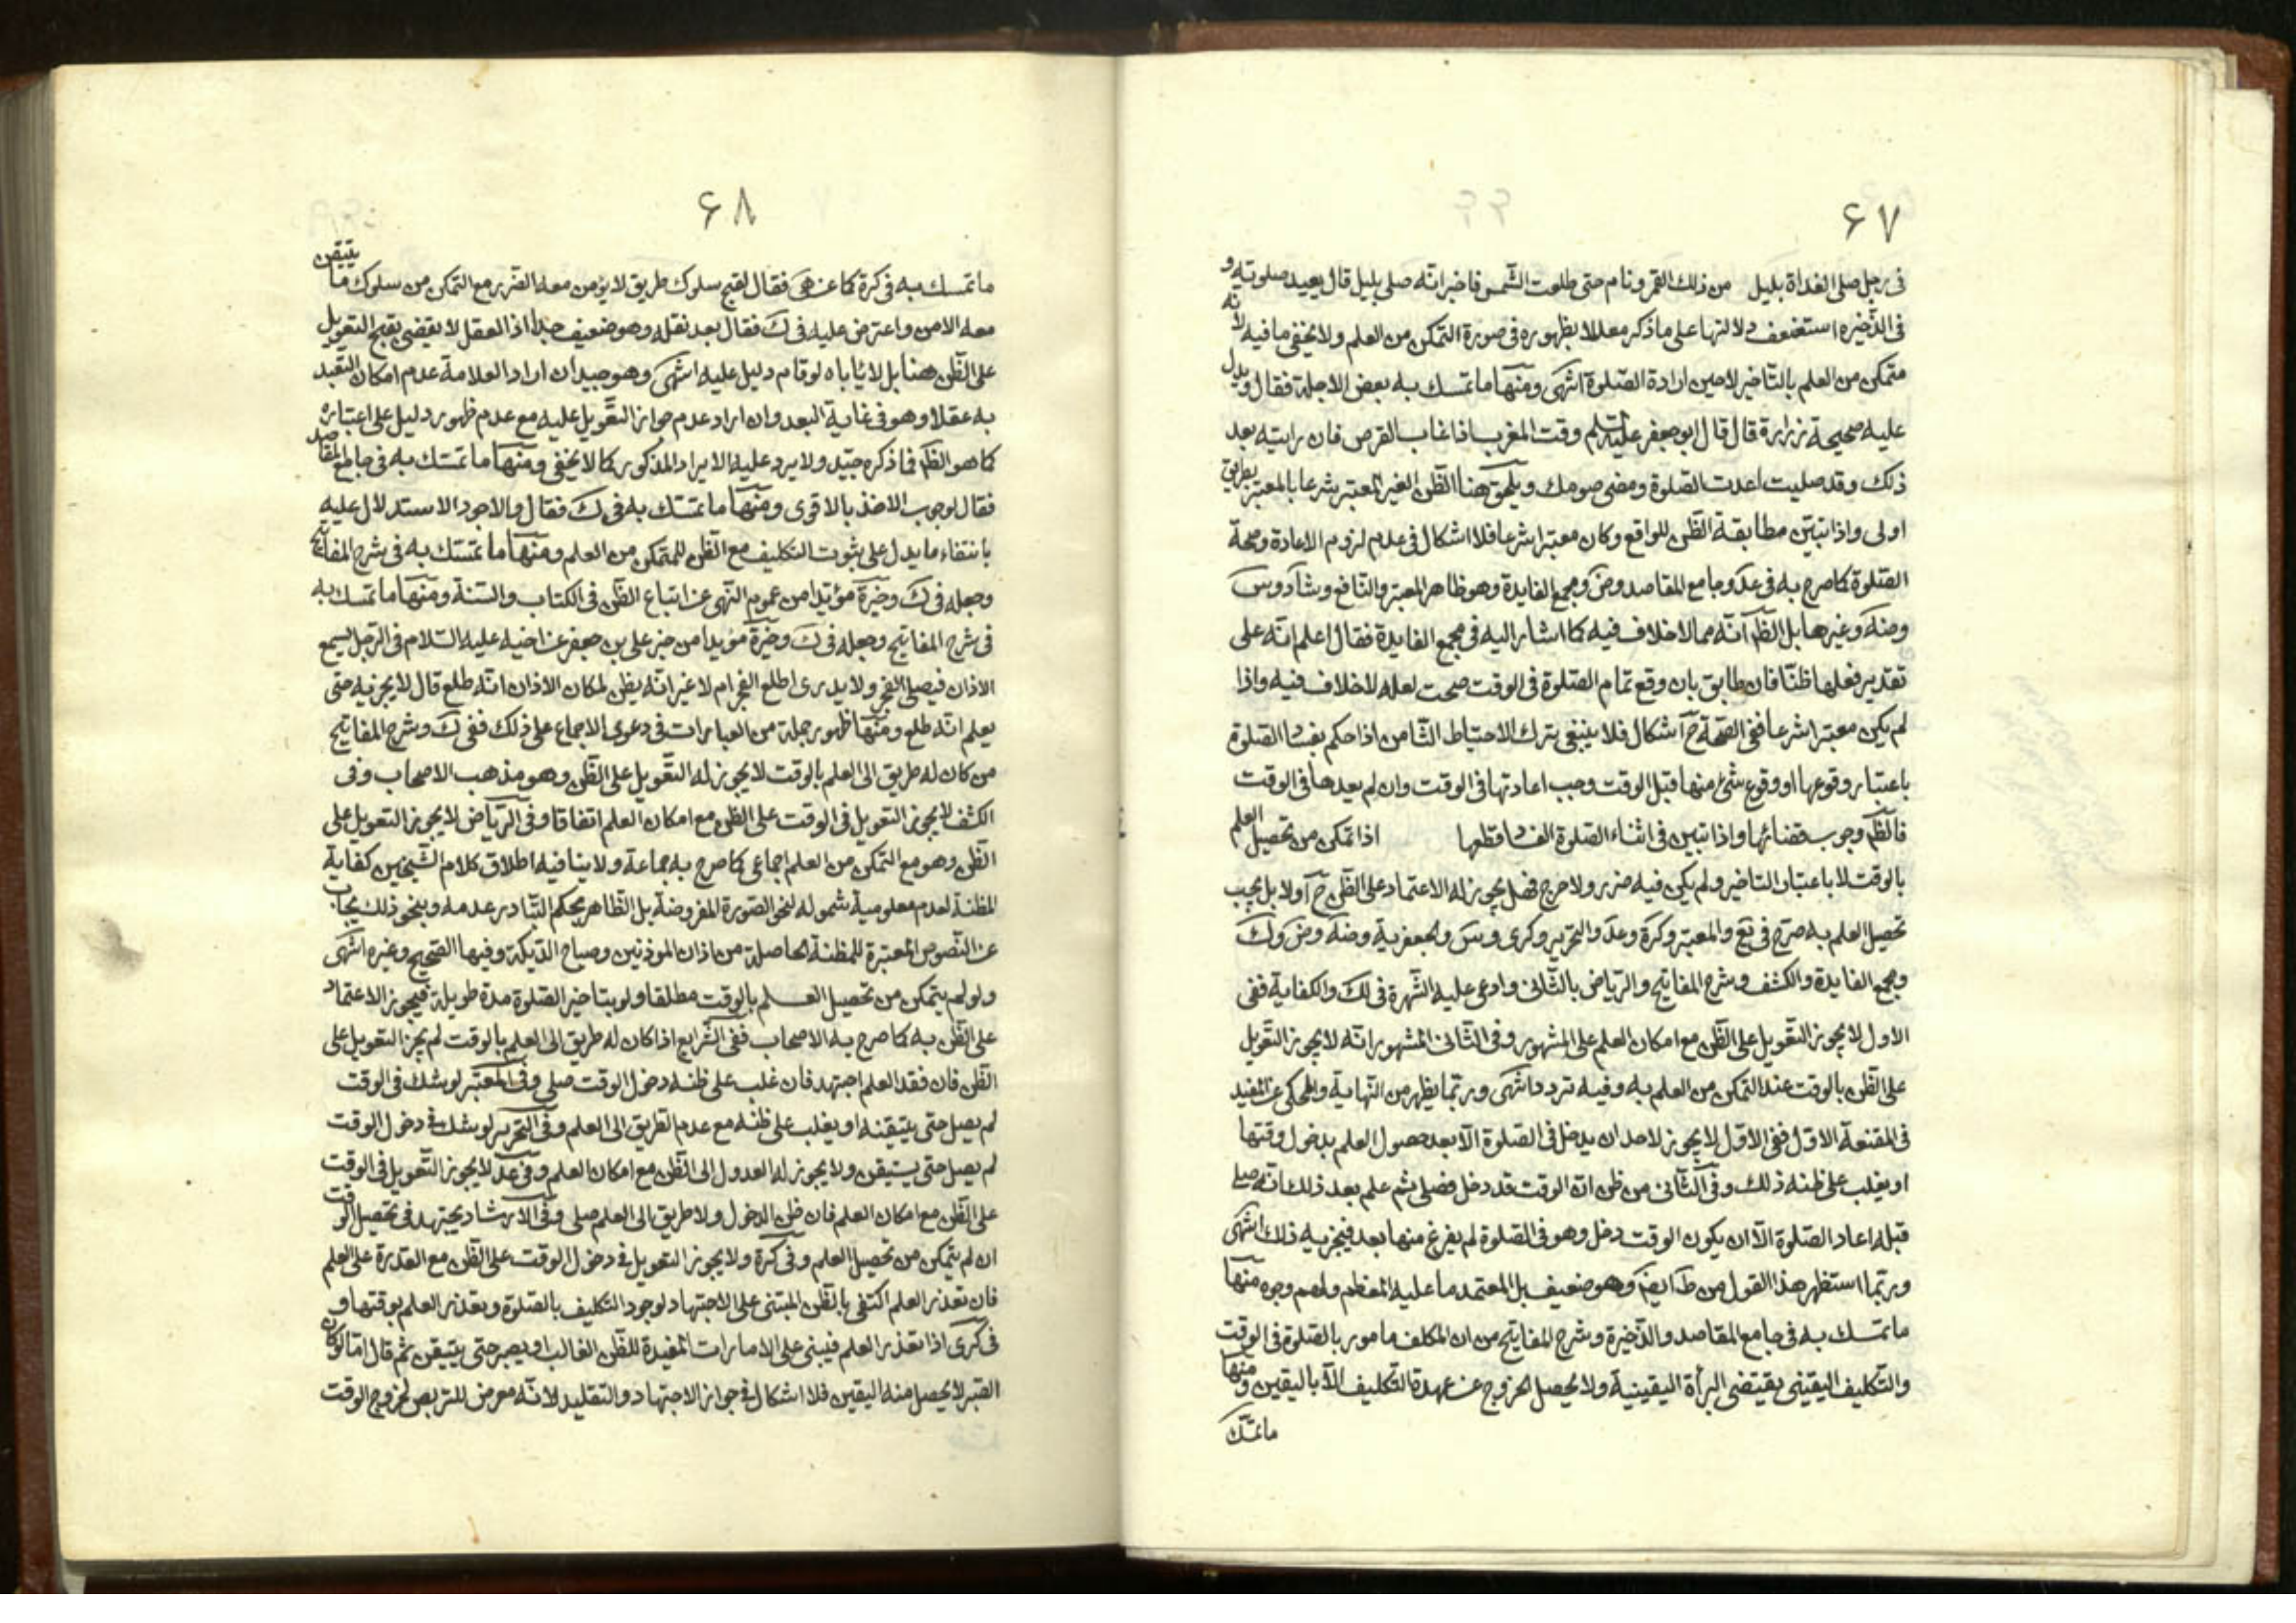 ٦٧
فى رجل صلى الغداة بليل من ذلك القمر ونام حتى طلعت الشمس فاخبر انه صلى بليل قال يعيد صلوته و
فى الذخيره استضعف دلالتها على ما ذكر معللا بظهوره فى صورة التمكن من العلم ولا يخفى ما فيه لانه
متمكن من العلم بالتاخير لا حين ارادة الصلوة انتهى ومنها ما تمسك به بعض الاجلة فقال ويدل
عليه صحيحة زرارة قال قال ابو جعفر عليه السلم وقت المغرب اذا غاب القرص فان رايته بعد
ذلك وقد صليت اعدت الصلوة ومضى صومك ويلحق هنا الظن الغير المعتبر شرعا بالمعتبر بطريق
اولى واذا تبين مطابقة الظن للواقع وكان معتبرا شرعا فلا اشكال فى عدم لزوم الاعادة وصحة
الصلوة كما صرح به فى عد وجامع المقاصد وض ومجمع الفايدة وهو ظاهر المعتبر والنافع وشاد وس
وضه وغيرها بل الظ انه مما لا خلاف فيه كما اشار اليه فى مجمع الفايدة فقال اعلم انه على
تقدير فعلها ظنا فان طابق بان وقع تمام الصلوة فى الوقت صحت لعله لا خلاف فيه واذا
لم يكن معتبرا شرعا ففى الصحة ح اشكال فلا ينبغى ترك الاحتياط الثامن اذا حكم بفسا الصلوة
باعتبار وقوعها او وقوع شئ منها قبل الوقت وجب اعادتها فى الوقت وان لم يعدها فى الوقت
فالظ وجوب قضائها واذا تبين فى اثناء الصلوة الفسا قطعها اذا تمكن من تحصيل العلم
بالوقت لا باعتبار التاخير ولم يكن فيه ضرر ولا حرج فهل يجوز له الاعتماد على الظن ح او لا بل يجب
تحصيل العلم به صرح فى يع والمعتبر وكرة وعد والتحرير وكرى وس والجعفرية وضه وض وك
ومجمع الفايدة والكشف وشرح المفاتيح والرياض بالثانى وادعى عليه الشهرة فى لك والكفاية ففى
الاول لا يجوز التعويل على الظن مع امكان العلم على المشهور وفى الثانى المشهور انه لا يجوز التعويل
على الظن بالوقت عند التمكن من العلم به وفيه تردد انتهى وربما يظهر من النهاية والمحكى عن المفيد
فى المقنعة الاول ففى الاول لا يجوز لاحد ان يدخل فى الصلوة الا بعد حصول العلم بدخول وقتها
او يغلب على ظنه ذلك وفى الثانى من ظن ان الوقت قد دخل فصلى ثم علم بعد ذلك انه صلى
قبله اعاد الصلوة الا ان يكون الوقت دخل وهو فى الصلوة لم يفرغ منها بعد فيجزيه ذلك انتهى
وربما استظهر هذا القول من ط ايضا وهو ضعيف بل المعتمد ما عليه المعظم ولهم وجوه منها
ما تمسك به فى جامع المقاصد والذخيرة وشرح المفاتيح من ان المكلف مامور بالصلوة فى الوقت
والتكليف اليقينى يقتضى البرأة اليقينية ولا يحصل الخروج عن عهدة التكليف الا باليقين ومنها
ما تمسك
٦٨
ما تمسك به فى كرة كما عن هى فقال لقبح سلوك طريق لا يؤمن معه الضرر مع التمكن من سلوك ما يتيقن
معه الامن واعترض عليه فى ك فقال بعد نقله وهو ضعيف جدا اذ العقل لا يقضى بقبح التعويل
على الظن هنا بل لا ياباه لو قام دليل عليه انتهى وهو جيد ان اراد العلامة عدم امكان التعبد
به عقلا وهو فى غاية البعد وان اراد عدم جواز التعويل عليه مع عدم ظهور دليل على اعتباره
كما هو الظ فما ذكره جيد ولا يرد عليه الايراد المذكور كما لا يخفى ومنها ما تمسك به فى جامع المقاصد
فقال لوجوب الاخذ بالاقوى ومنها ما تمسك به فى ك فقال والاجود الاستدلال عليه
بانتفاء ما يدل على ثبوت التكليف مع الظن للمتمكن من العلم ومنها ما تمسك به فى شرح المفاتيح
وجعله فى ك وخيرة مؤيدا من عموم النهى عن اتباع الظن فى الكتاب والسنة ومنها ما تمسك به
فى شرح المفاتيح وجعله فى ك وخيرة مؤيدا من خبر على بن جعفر عن اخيه عليه السلام فى الرجل يسمع
الاذان فيصلى الفجر ولا يدرى اطلع الفجر ام لا غير انه يظن لمكان الاذان انه طلع قال لا يجزيه حتى
يعلم انه طلع ومنها ظهور جملة من العبارات فى دعوى الاجماع على ذلك ففى ك وشرح المفاتيح
من كان له طريق الى العلم بالوقت لا يجوز له التعويل على الظن وهو مذهب الاصحاب وفى
الكشف لا يجوز التعويل فى الوقت على الظن مع امكان العلم اتفاقا وفى الرياض لا يجوز التعويل على
الظن وهو مع التمكن من العلم اجماعى كما صرح به جماعة ولا ينافيه اطلاق كلام الشيخين كفاية
المظنة لعدم معلومية شموله لنحو الصورة المفروضة بل الظاهر بحكم التبادر عدمه وبنحو ذلك يجاب
عن النصوص المعتبرة للمظنة الحاصلة من اذان الموذنين وصياح الديكة وفيها الصحيح وغيره انتهى
ولو لم يتمكن من تحصيل العلم بالوقت مطلقا ولو بتاخير الصلوة مدة طويلة فيجوز الاعتماد
على الظن به كما صرح به الاصحاب ففى الشرايع اذا كان له طريق الى العلم بالوقت لم يجز التعويل على
الظن فان فقد العلم اجتهد فان غلب على ظنه دخول الوقت صلى وفى المعتبر لو شك فى الوقت
لم يصل حتى يتيقنه او يغلب على ظنه مع عدم الطريق الى العلم وفى التحرير لو شك فى دخول الوقت
لم يصل حتى يستيقن ولا يجوز له العدول الى الظن مع امكان العلم وفى عد لا يجوز التعويل فى الوقت
على الظن مع امكان العلم فان ظن الدخول ولا طريق الى العلم صلى وفى الارشاد يجتهد فى تحصيل الوقت
ان لم يتمكن من تحصيل العلم وفى كرة ولا يجوز التعويل فى دخول الوقت على الظن مع القدرة على العلم
فان تعذر العلم اكتفى بالظن المبتنى على الاجتهاد لوجود التكليف بالصلوة وتعذر العلم بوقتها و
فى كرى اذا تعذر العلم فيبنى على الامارات المفيدة للظن الغالب او يصبر حتى يتيقن ثم قال اما لو كان
الصبر لا يحصل منه اليقين فلا اشكال فى جواز الاجتهاد والتقليد لانه معرض للتربص لخروج الوقت